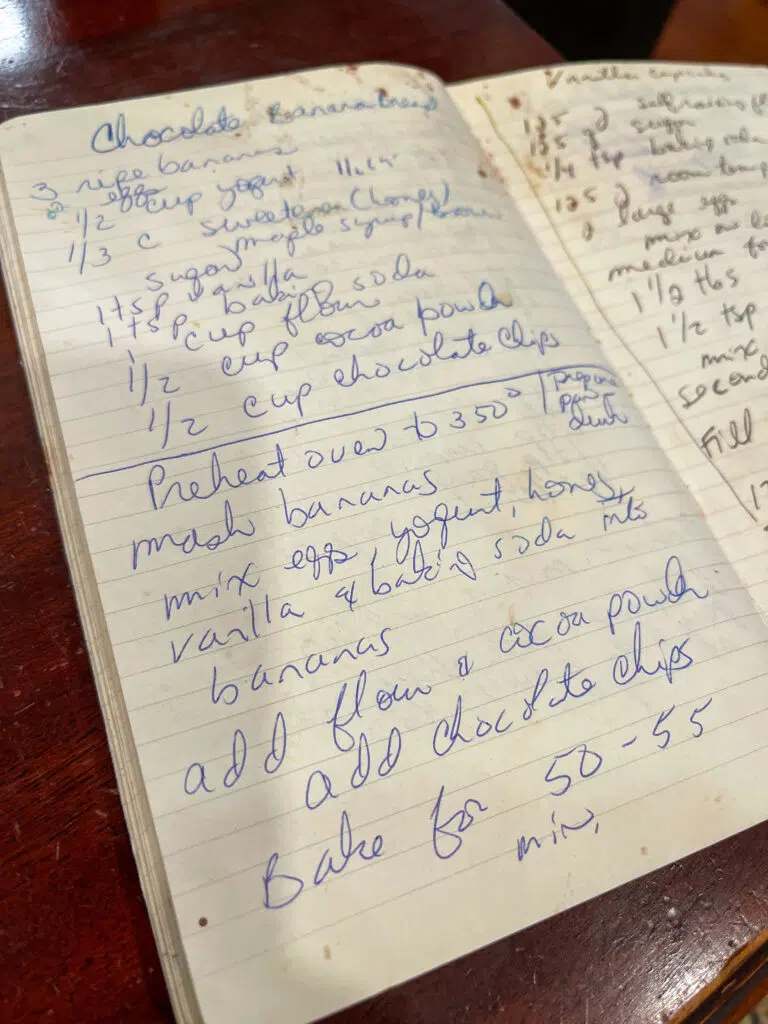 Chocolate Banana Bread
3 ripe bananas
2 eggs
1/2 cup yogurt
1/3 c sweetener (honey)
maple syrup/brown
sugar
1 tsp vanilla
1 tsp baking soda
1 cup flour
1/2 cup cocoa powder
1/2 cup chocolate chips
Preheat oven to 350°
prepare
pan
mash bananas
mix egg, yogurt, honey,
vanilla & baking soda into
bananas
add flour & cocoa powder
add chocolate chips
Bake for 50-55
min.
Vanilla cupcake
125 g self raising
125 g sugar
1/4 tsp baking
125 g room temp
2 large egg
mix
medium
1 1/2 tbs
1 1/2 tsp
mix
second
Fill